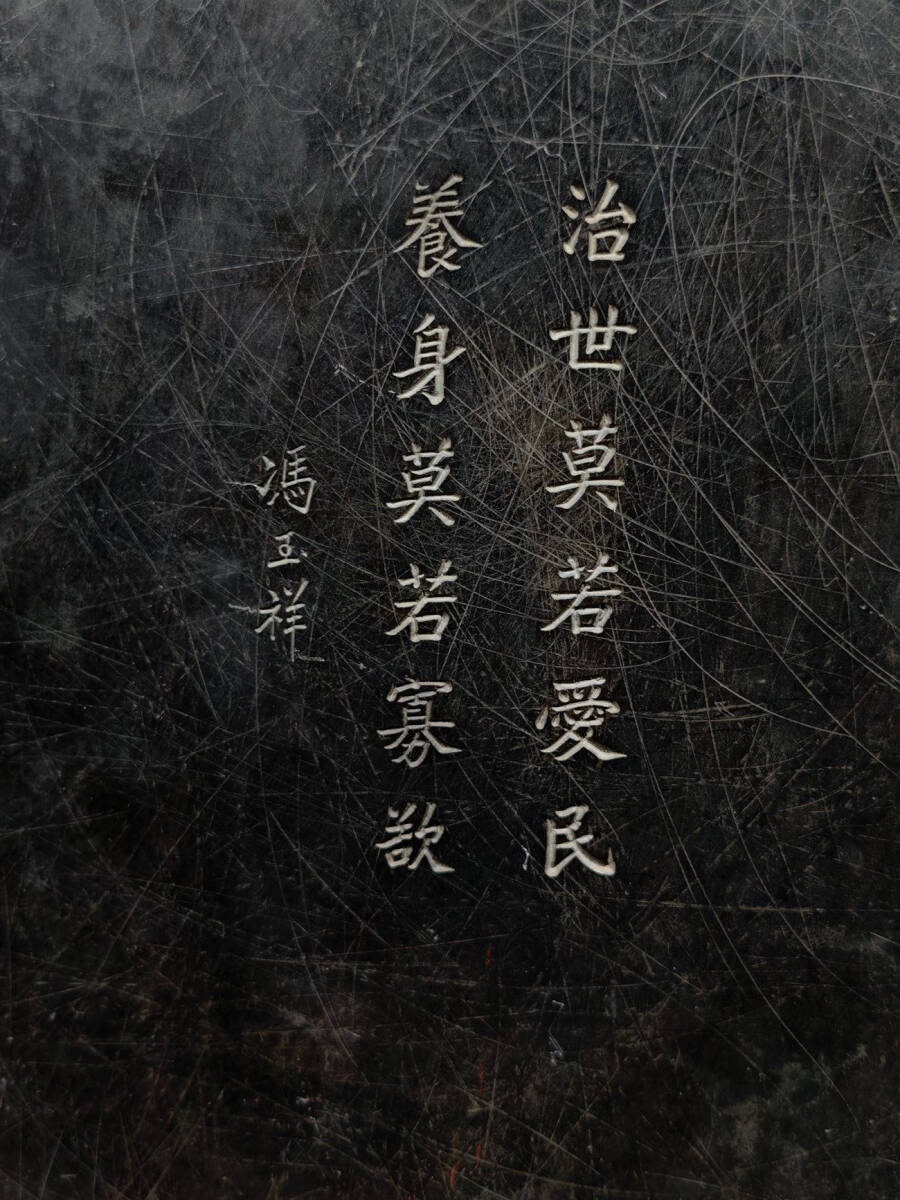 治世莫若愛民
養身莫若寡欲
馮玉祥